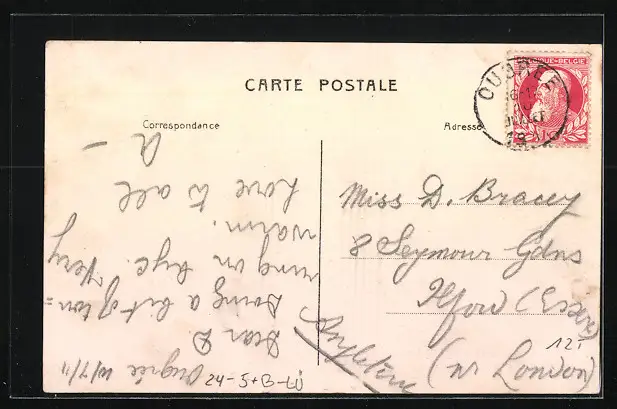 CARTE POSTALE
Correspondance
Adresse
BELGIQUE-BELGIE
OUGRÉE
Ougrée 10/7/11
Dear D
Doing a bit of ton=
ring on byc. Very
warm.
Love to all
A-
Miss D. Bracey
8 Seymour Gdns
Ilford (Essex)
(nr London)
Angleterre
121
24-5+B-LÜ